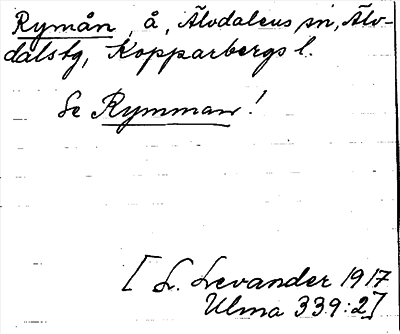 Rymån, å, Älvdalens sn, Älv-
dalstg, Kopparbergs l.
Se Rymman!
[L. Levander 1917
Ulma 339:2]